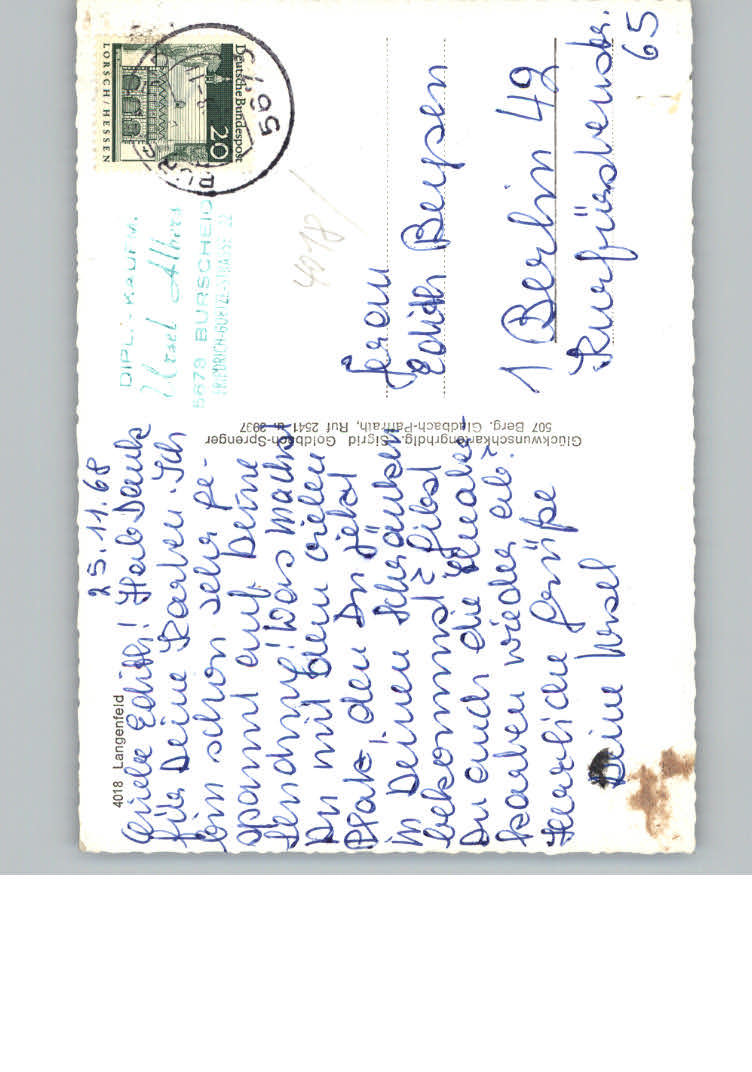 4018 Langenfeld
25.11.68
Liebe Edith! Hab Dank
für Deine Karten. Ich
bin schon sehr ge-
spannt auf Deine
Sendung! Was machst
Du mit dem vielen
Platz, den Du jetzt
in Deinen Schränken
bekommst? Gibst
Du auch die
karten wieder ab?
Herzliche Grüße
Deine Ursel
Glückwunschkartengrhdlg. Sigrid Goldbach-Sprenger
507 Berg. Gladbach-Paffrath, Ruf 2541 u. 3937
DIPL.-KAUFM.
Ursel Albers
5673 BURSCHEID
LORSCH/HESSEN
Deutsche Bundespost
20
567
4018/
Frau
Edith Beysen
1 Berlin 49
65